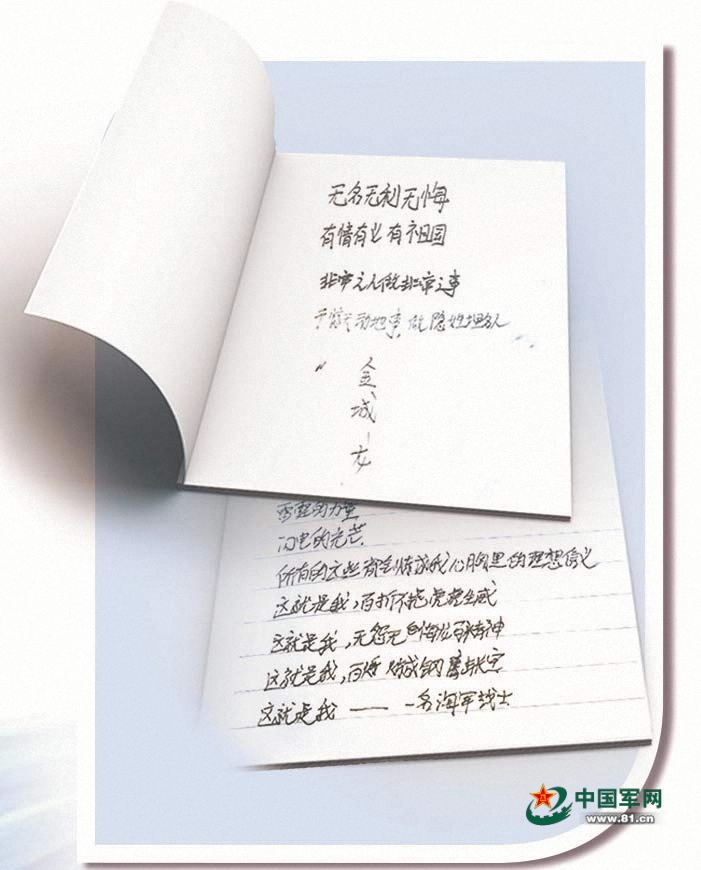 无名无利无悔
有情有义有祖国
非常之人做非常之事
干惊天动地事 做隐姓埋名人
金城
雷霆的力量
闪电的光芒
所有的这些都
我心胸里的理想信义
这就是我，百折不挠虎
这就是我，无怨无悔
精神
这就是我，百炼成钢
这就是我——一名海军战士
中国军网
www.81.cn